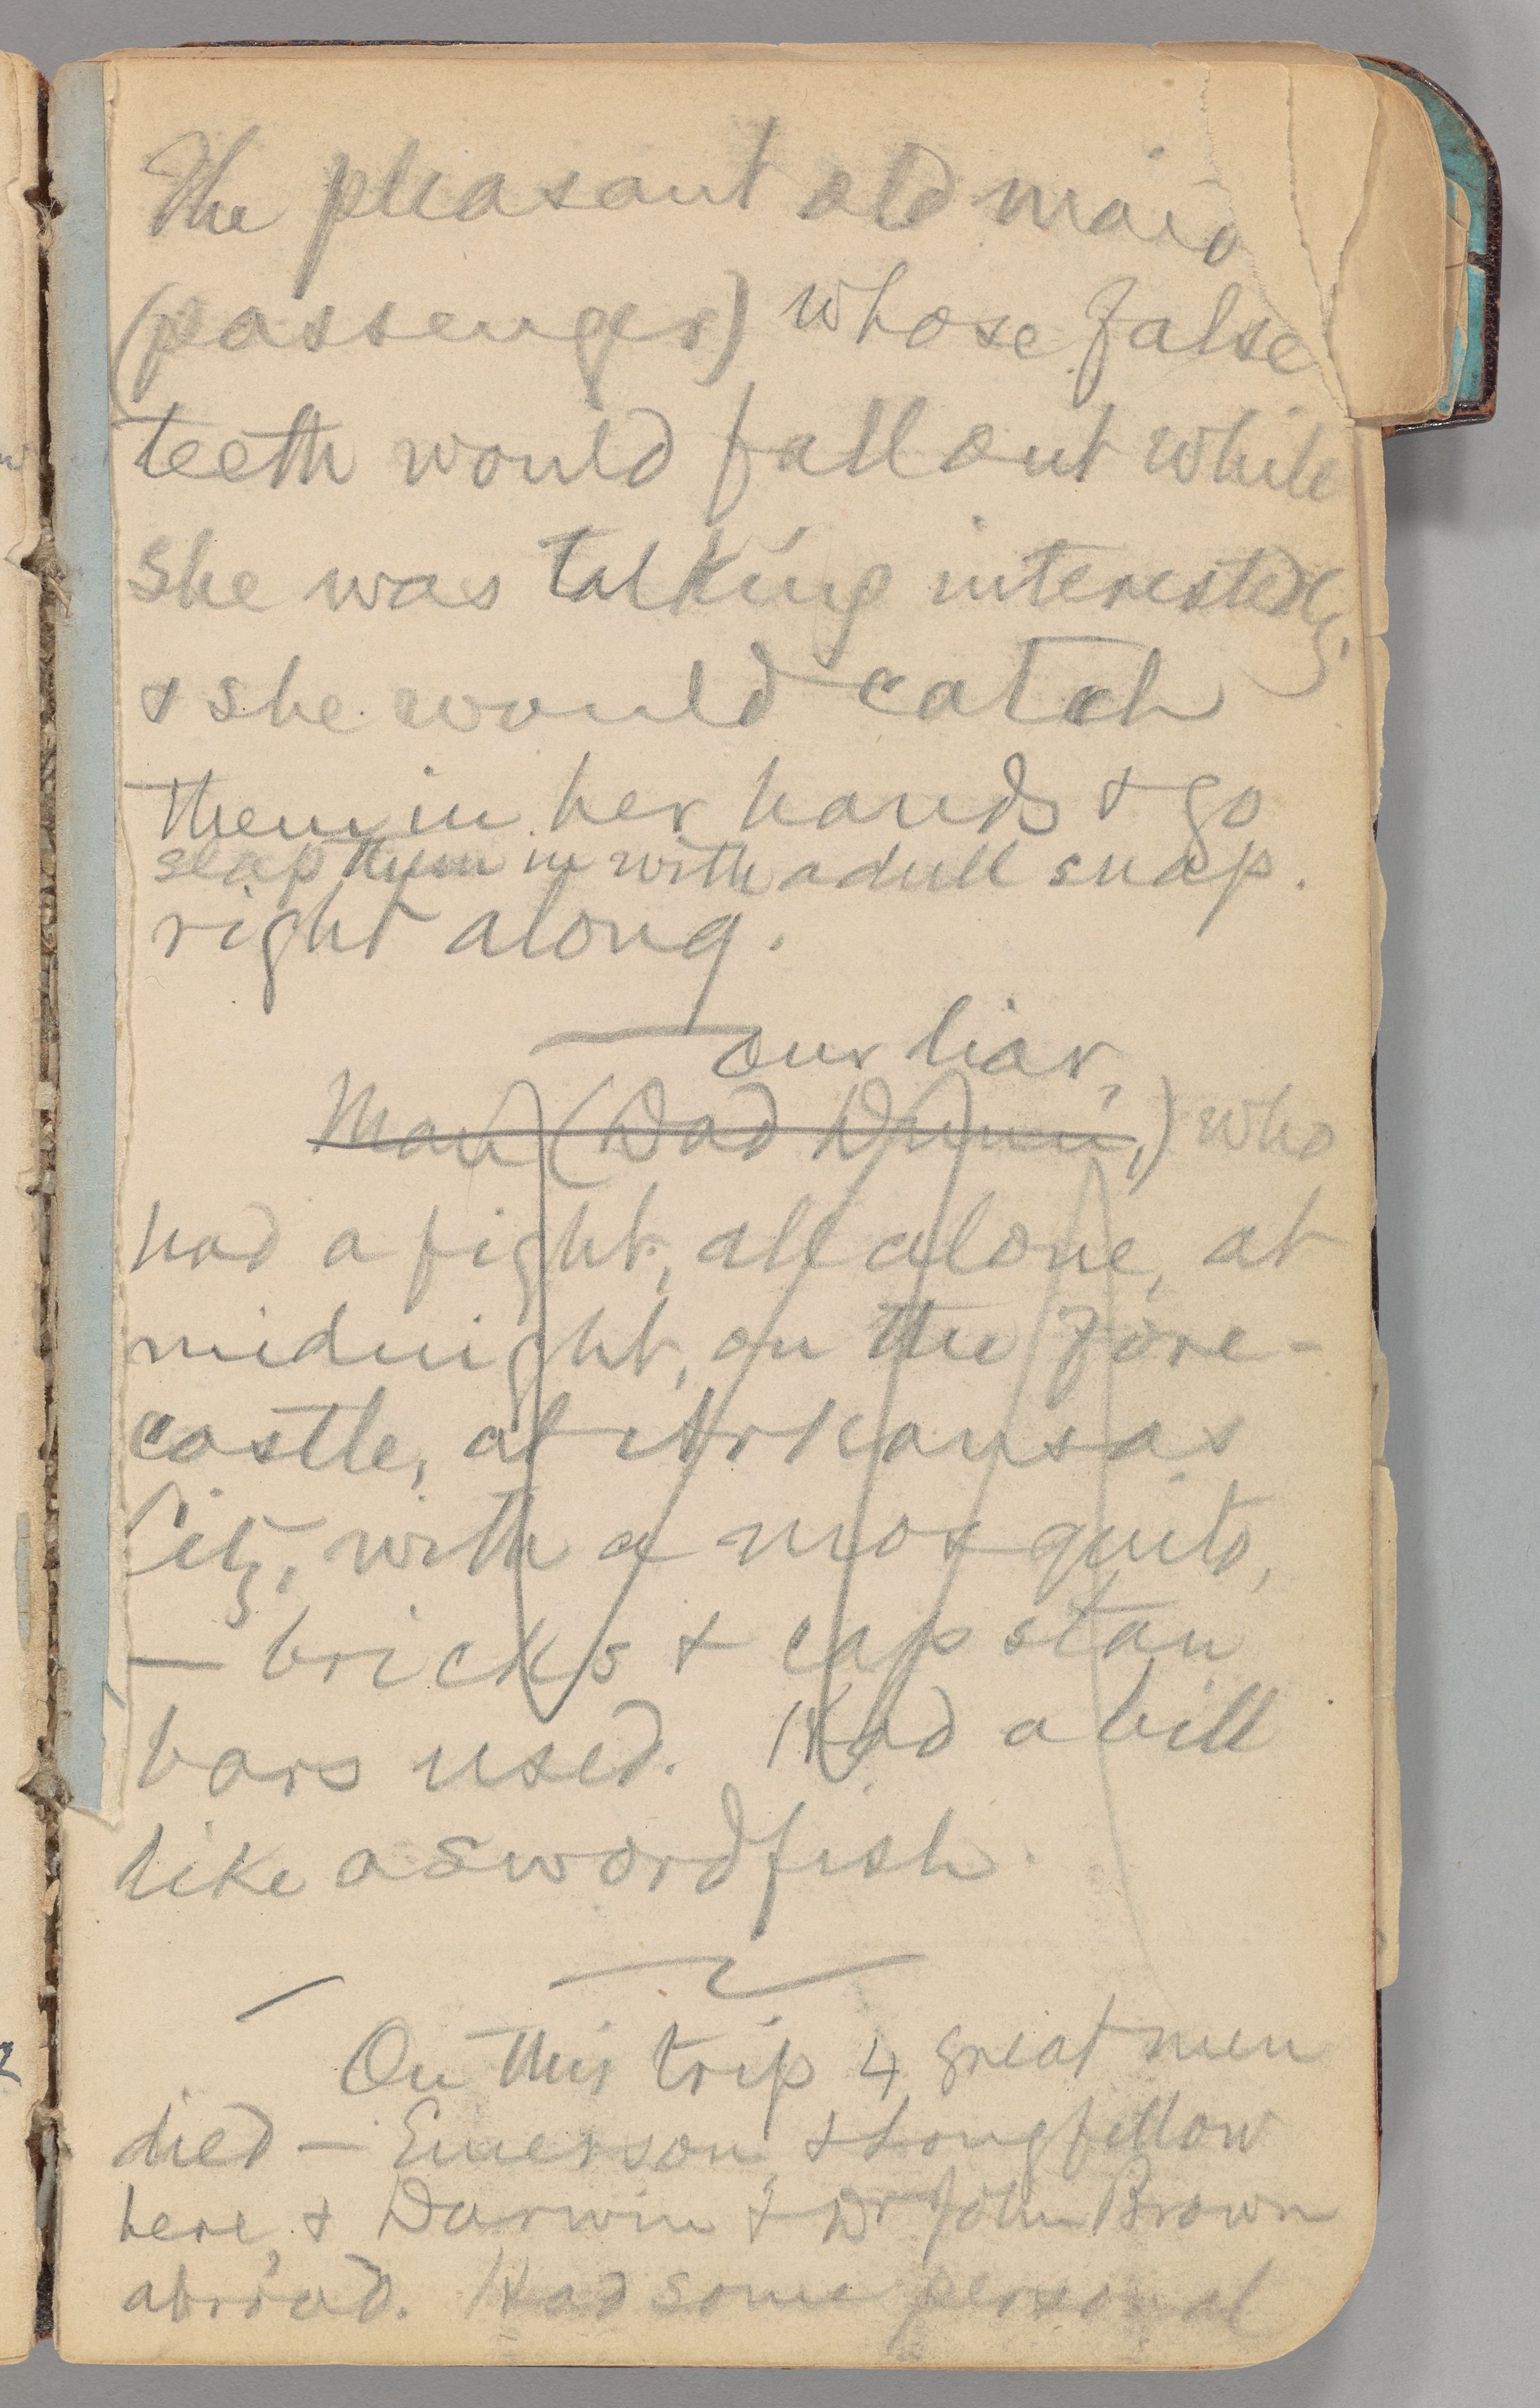 The pleasant old maid
(passenger) whose false
teeth would fall out while
she was talking interestedly,
& she would catch
them in her hands & go
slap them in with a dull snap.
right along.
Our liar,
Man (Dad Dunn,) who
had a fight, all alone, at
midnight, on the fore-
castle, at Arkansas
City, with a mosquito,
— bricks & capstan
bars used. Had a bill
like a swordfish.
On this trip 4 great men
died — Emerson, & Longfellow
here, & Darwin & Dr John Brown
abroad. Had some personal